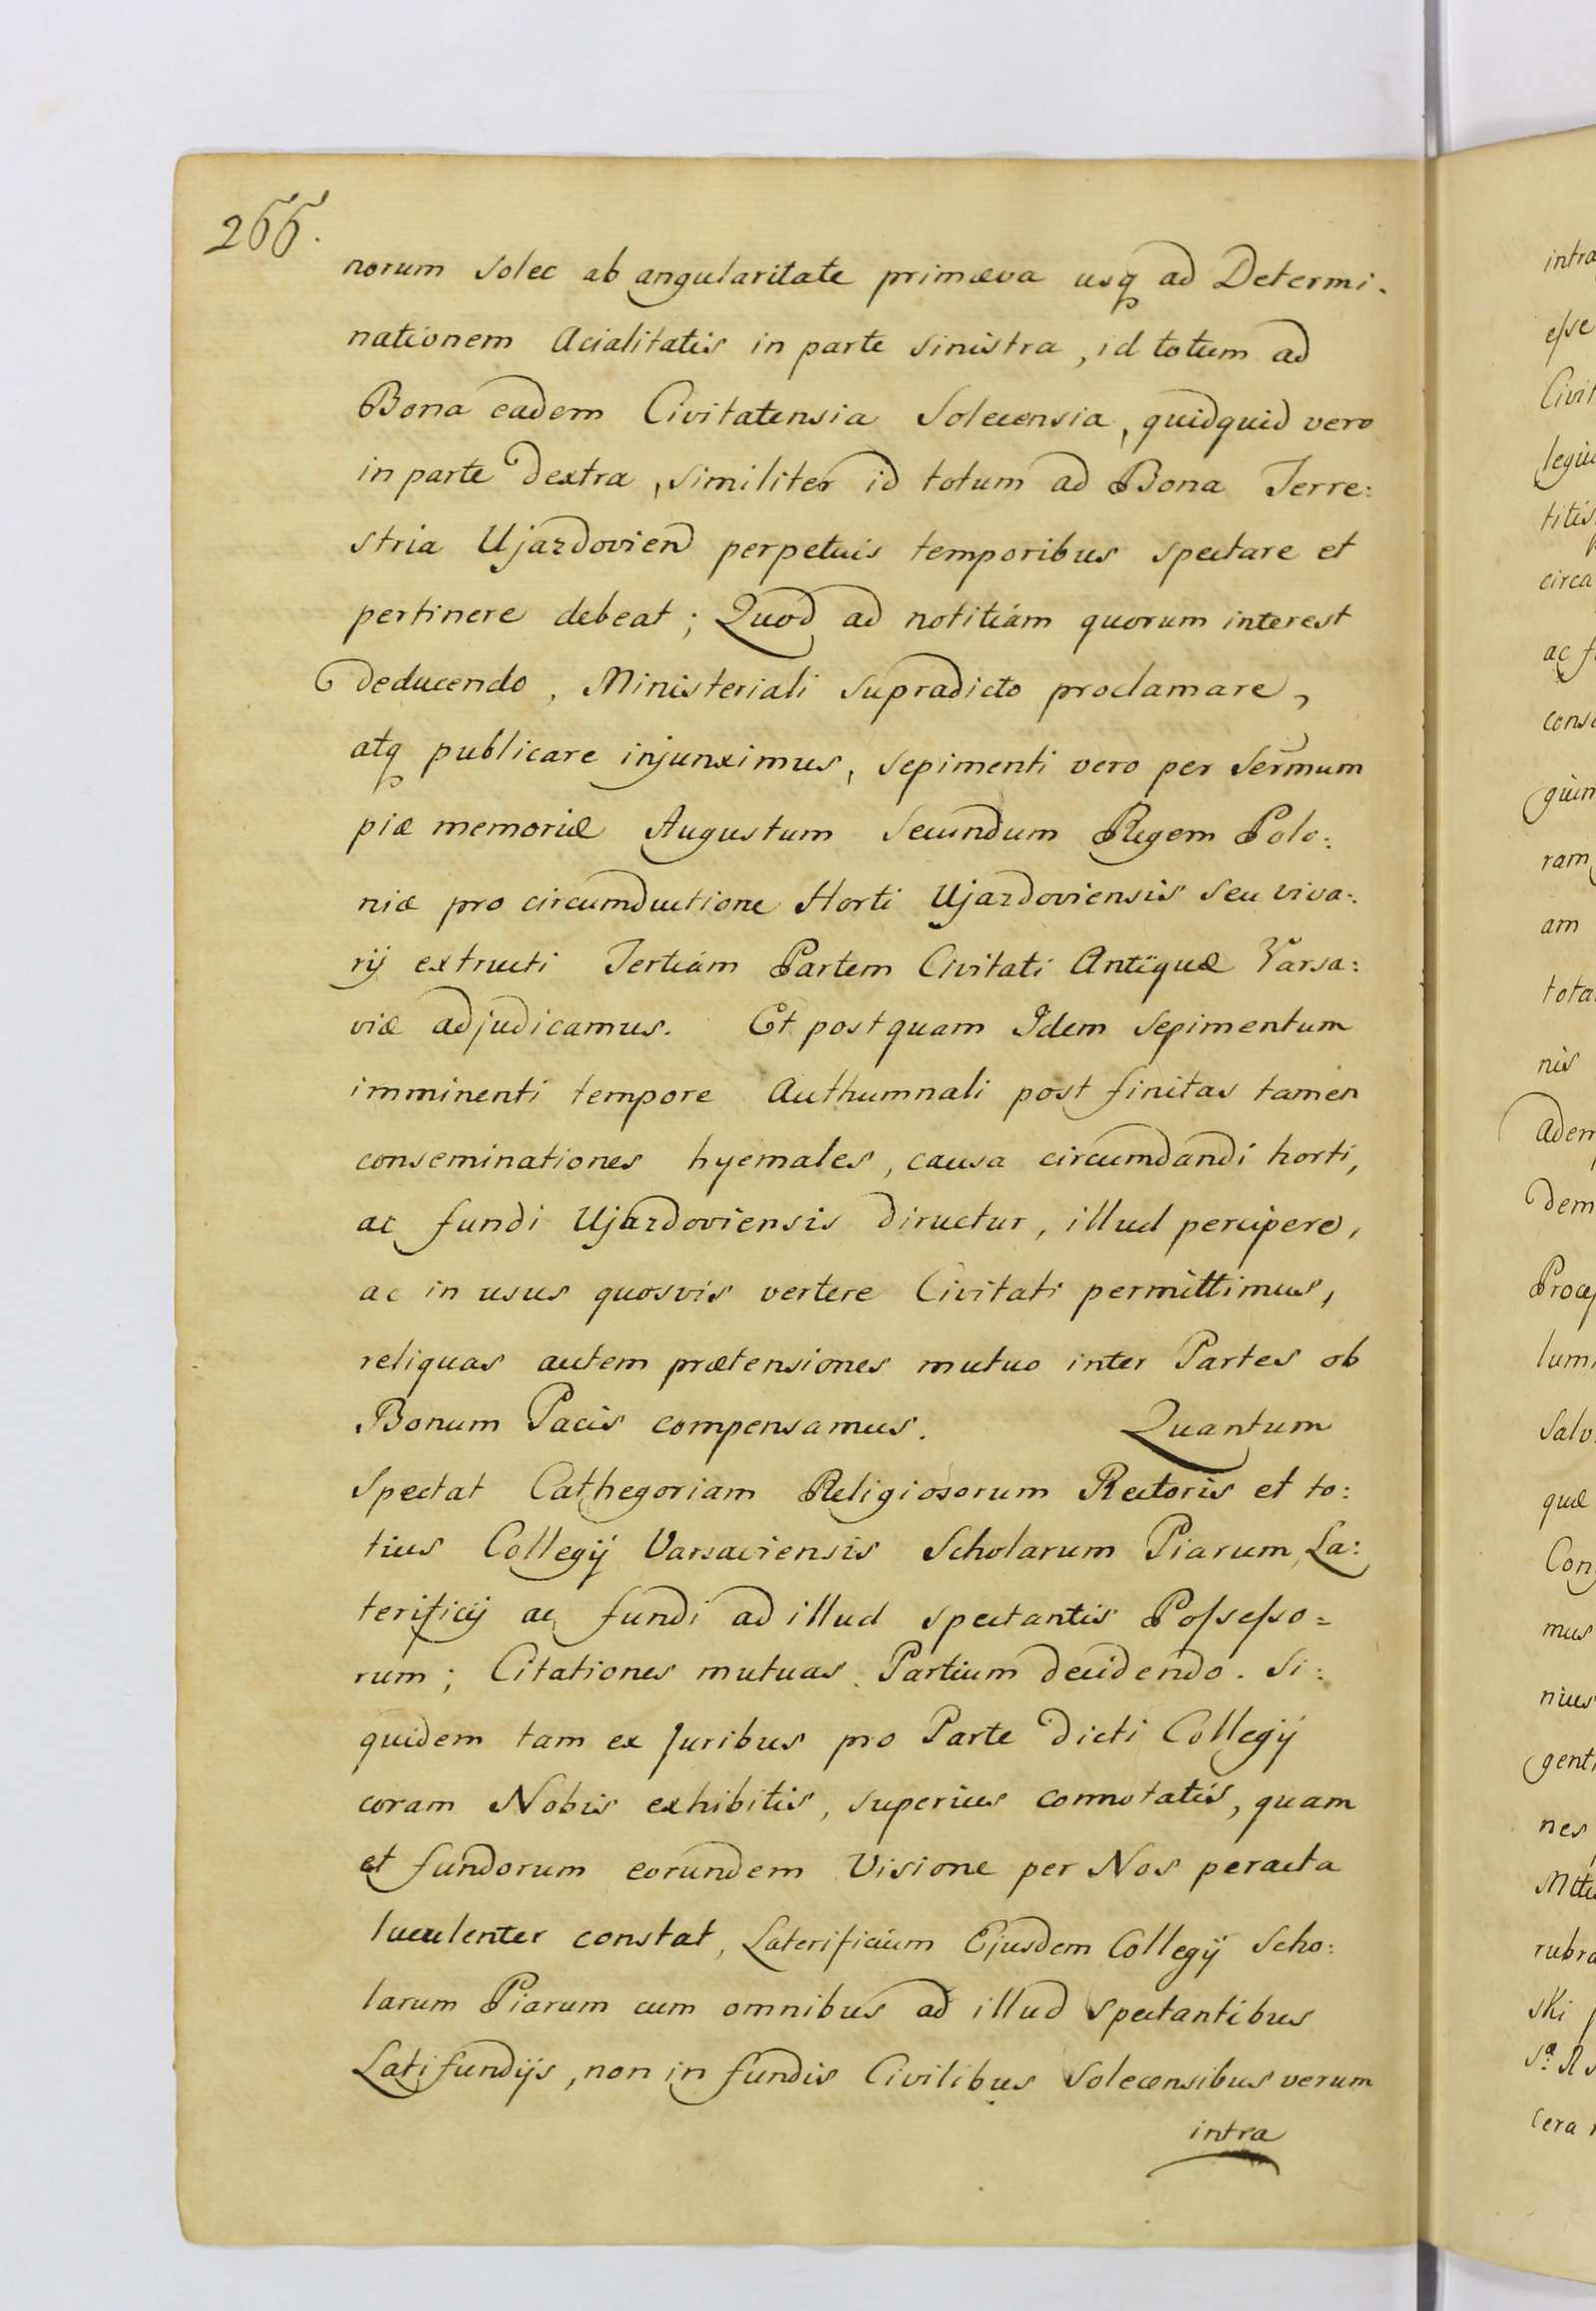 266.
norum Solec ab angularitate primæva usq ad Determi.
nationem Acialitatis in parte sinistra, id totum ad
Bona eadem Civitatensia Solecensia, quidquid vero
in parte dextra, similiter id totum ad Bona Terre:
stria Ujazdovien perpetuis temporibus spectare et
pertinere debeat; Quod ad notitiam quorum interest
deducendo, Ministeriali supradicto proclamare,
atq publicare injunximus, sepimenti vero per Sermum
piæ memoriæ Augustum Secundum Regem Polo:
niæ pro circumductione Horti Ujazdoviensis seu viva:
rij extructi Tertiam Partem Civitati Antiquæ Varsa:
viæ adjudicamus. Et postquam Idem Sepimentum
imminenti tempore Authumnali post finitas tamen
conseminationes hyemales, causa circumdandi horti,
ac fundi Ujazdoviensis diructur, illud percipere,
ac in usus quosvis vertere Civitati permittimus,
reliquas autem prætensiones mutuo inter Partes ob
Bonum Pacis compensamus. Quantum
Spectat Cathegoriam Religiosorum Rectoris et to:
tius Collegij Varsaviensis Scholarum Piarum, La:
terificij ac fundi ad illud spectantis Possesso=
rum; Citationes mutuas Partium decidendo. Si:
quidem tam ex Juribus pro Parte dicti Collegij
coram Nobis exhibitis, superius connotatis, quam
et fundorum eorundem Visione per Nos peracta
luculenter constat, Laterificium Ejusdem Collegij Scho:
larum Piarum cum omnibus ad illud spectantibus
Latifundijs, non in fundis Civilibus Solecensibus verum
intra
intra
esse
Civit
circa
ac
ram
am
tota
nis
adem
dem
lum
Salv
quæ
Con
mus
nius
gent
nes
rubra
ski
cera